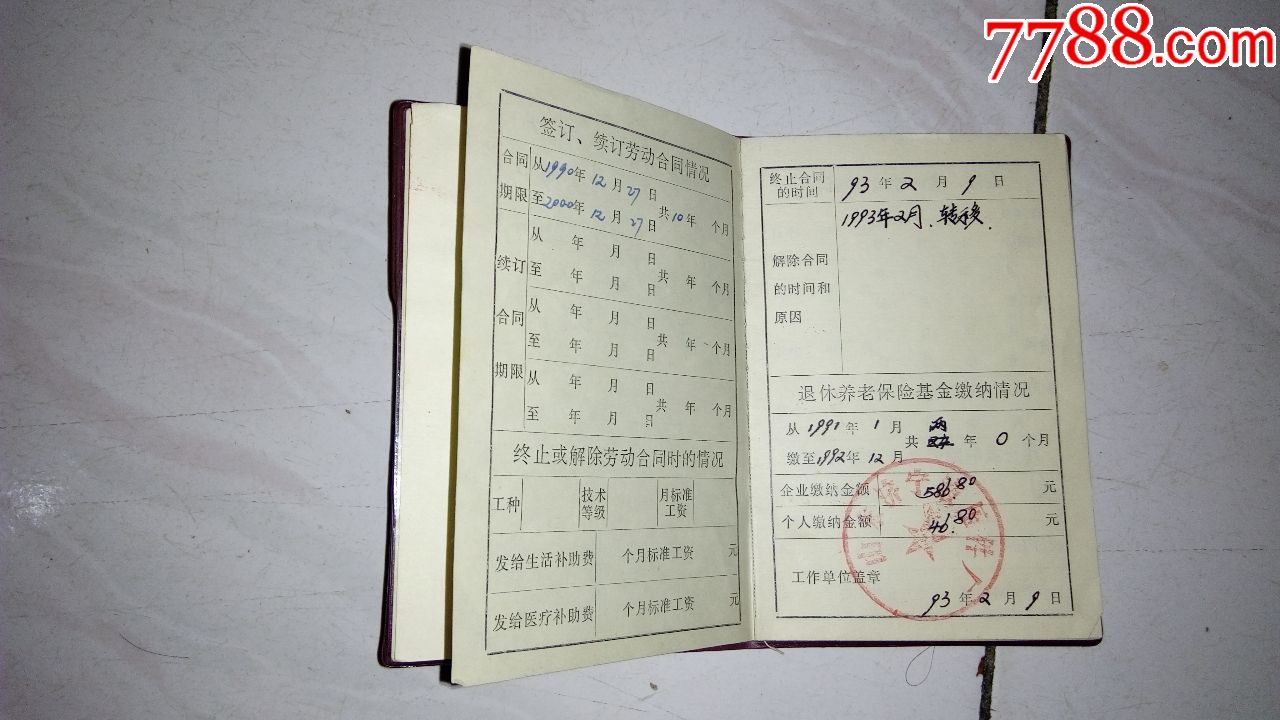 7788.com
签订、续订劳动合同情况
合同期限 从1990年12月27日
至2000年12月27日 共10年 个月
续订合同期限 从 年 月 日
至 年 月 日 共 年 个月
从 年 月 日
至 年 月 日 共 年 个月
从 年 月 日
至 年 月 日 共 年 个月
终止或解除劳动合同时的情况
工种 技术等级 月标准工资
发给生活补助费 个月标准工资 元
发给医疗补助费 个月标准工资 元
终止合同的时间 93年2月9日
解除合同的时间和原因 1993年2月、转移.
退休养老保险基金缴纳情况
从1991年1月
缴至1992年12月 共两年0个月
企业缴纳金额 586.80 元
个人缴纳金额 46.80 元
工作单位盖章
93年2月9日